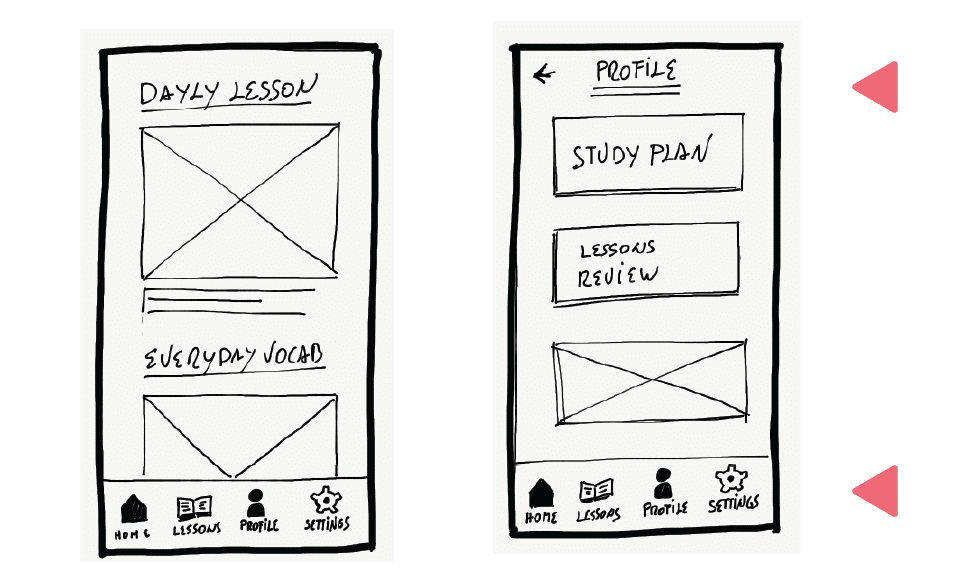 DAYLY LESSON
EVERYDAY VOCAB
HOME
LESSONS
PROFILE
SETTINGS
PROFILE
STUDY PLAN
LESSONS
REVIEW
HOME
LESSONS
PROFILE
SETTINGS